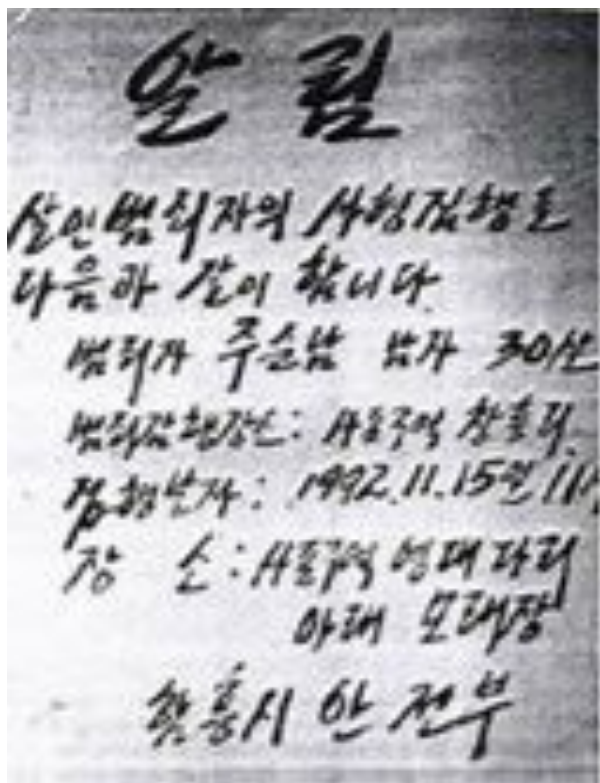 알 림
살인범죄자의 사형집행을
다음과 같이 합니다.
범죄자 주순남 남자 30살
범죄감행장소: 사포구역 창흥리
집행날자: 1992.11.15일 11
장 소: 사포구역 영대다리
아래 모래장
함흥시 안전부